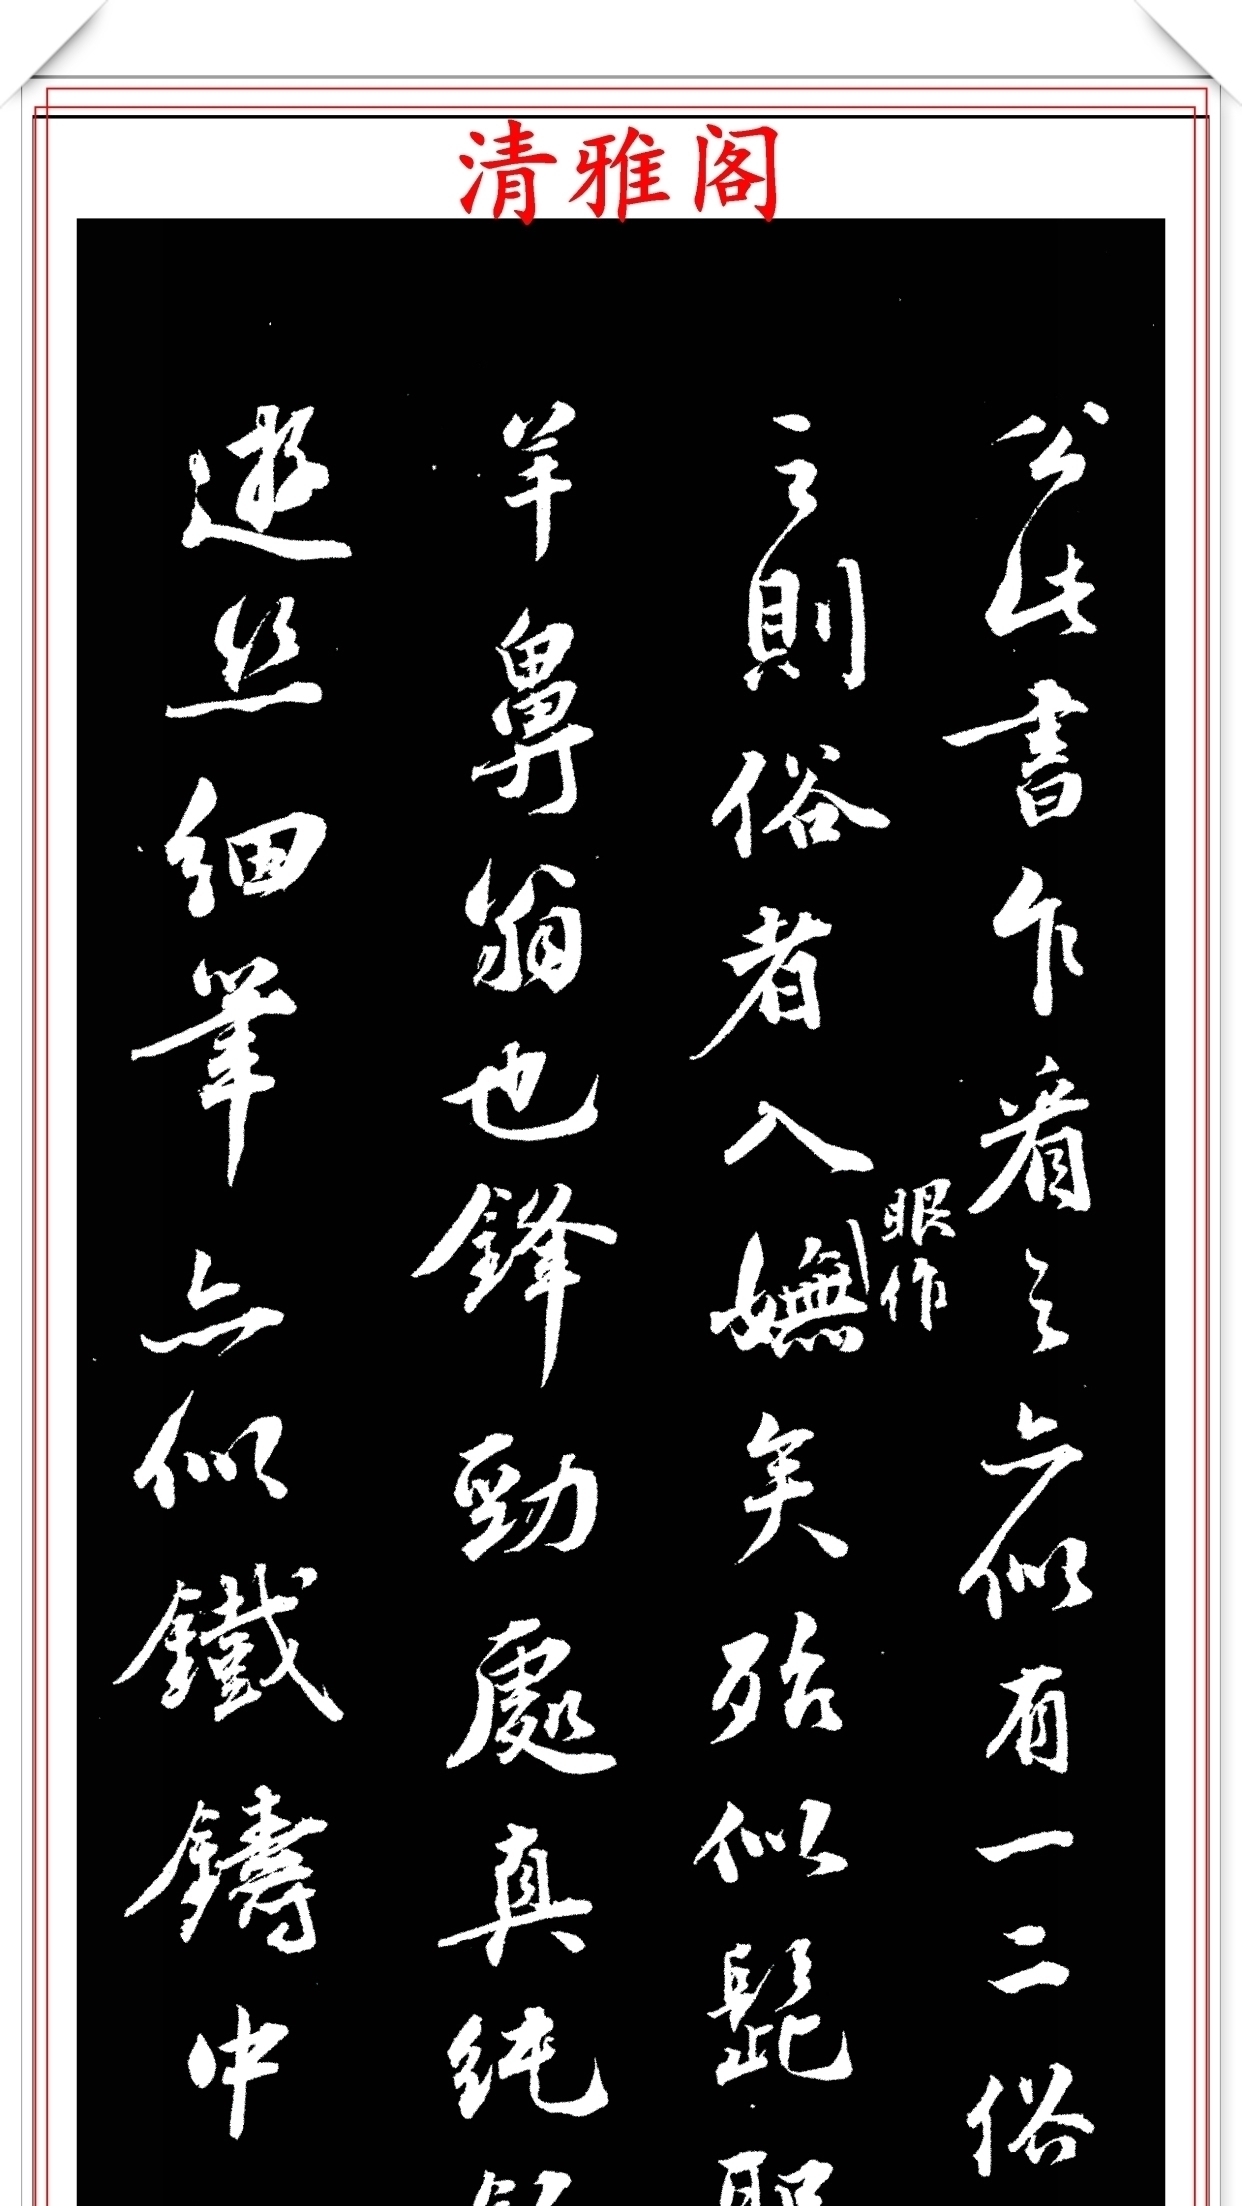 清雅阁
公此書乍看之亦似有一二俗
之則俗者入嫵矣殆似髭
眼作
羊鼻翁也鋒勁處真純
遊丝細筆亦似鐵鑄中